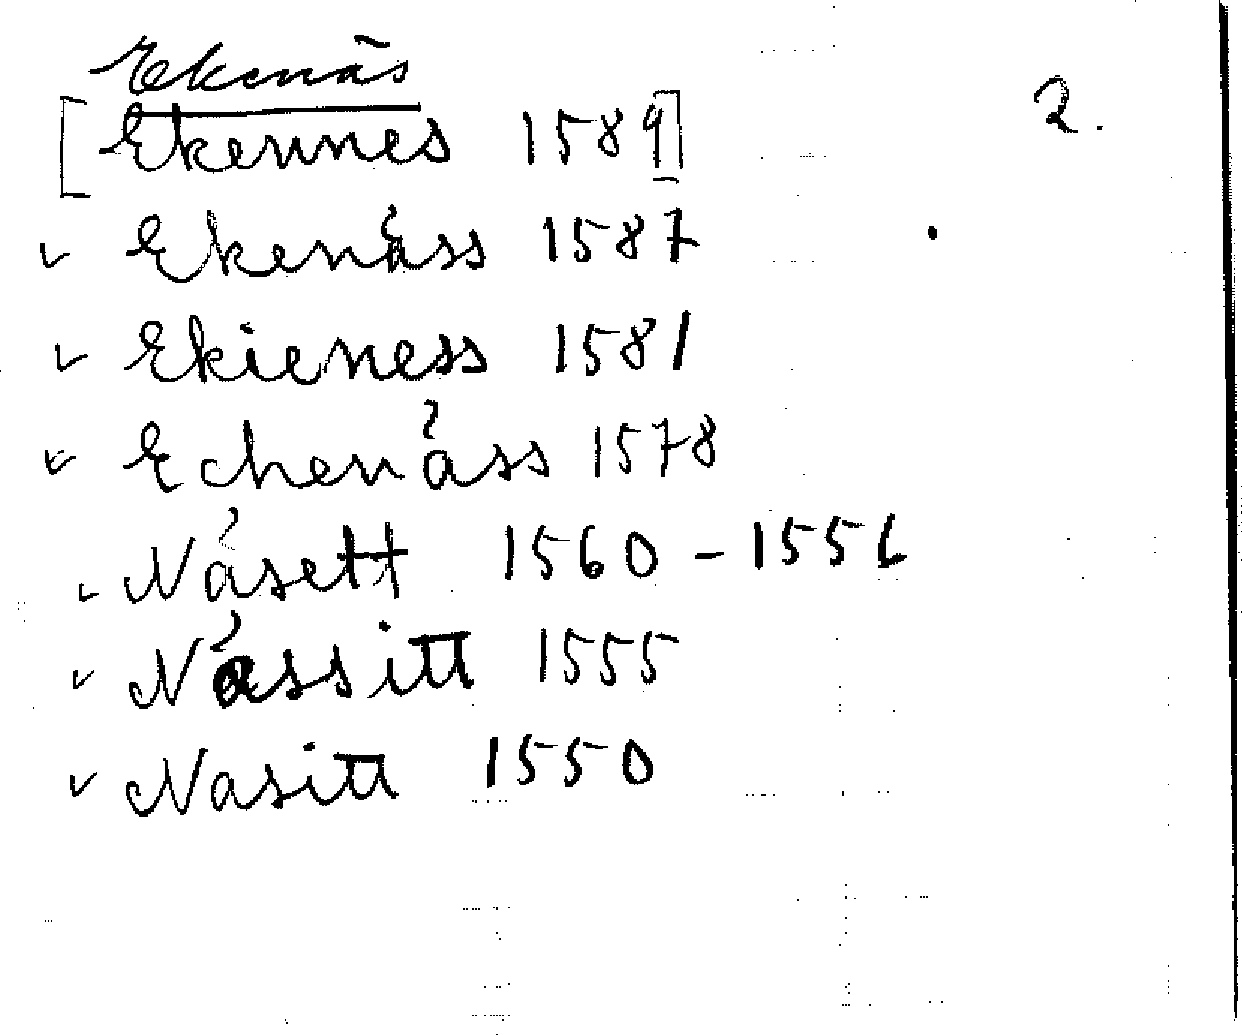 Ekenäs
2.
[Ekennes 1589]
✓ Ekenåss 1587
✓ Ekieness 1581
✓ Echenåss 1578
✓ Nåsett 1560 - 1556
✓ Nåssitt 1555
✓ Nasitt 1550